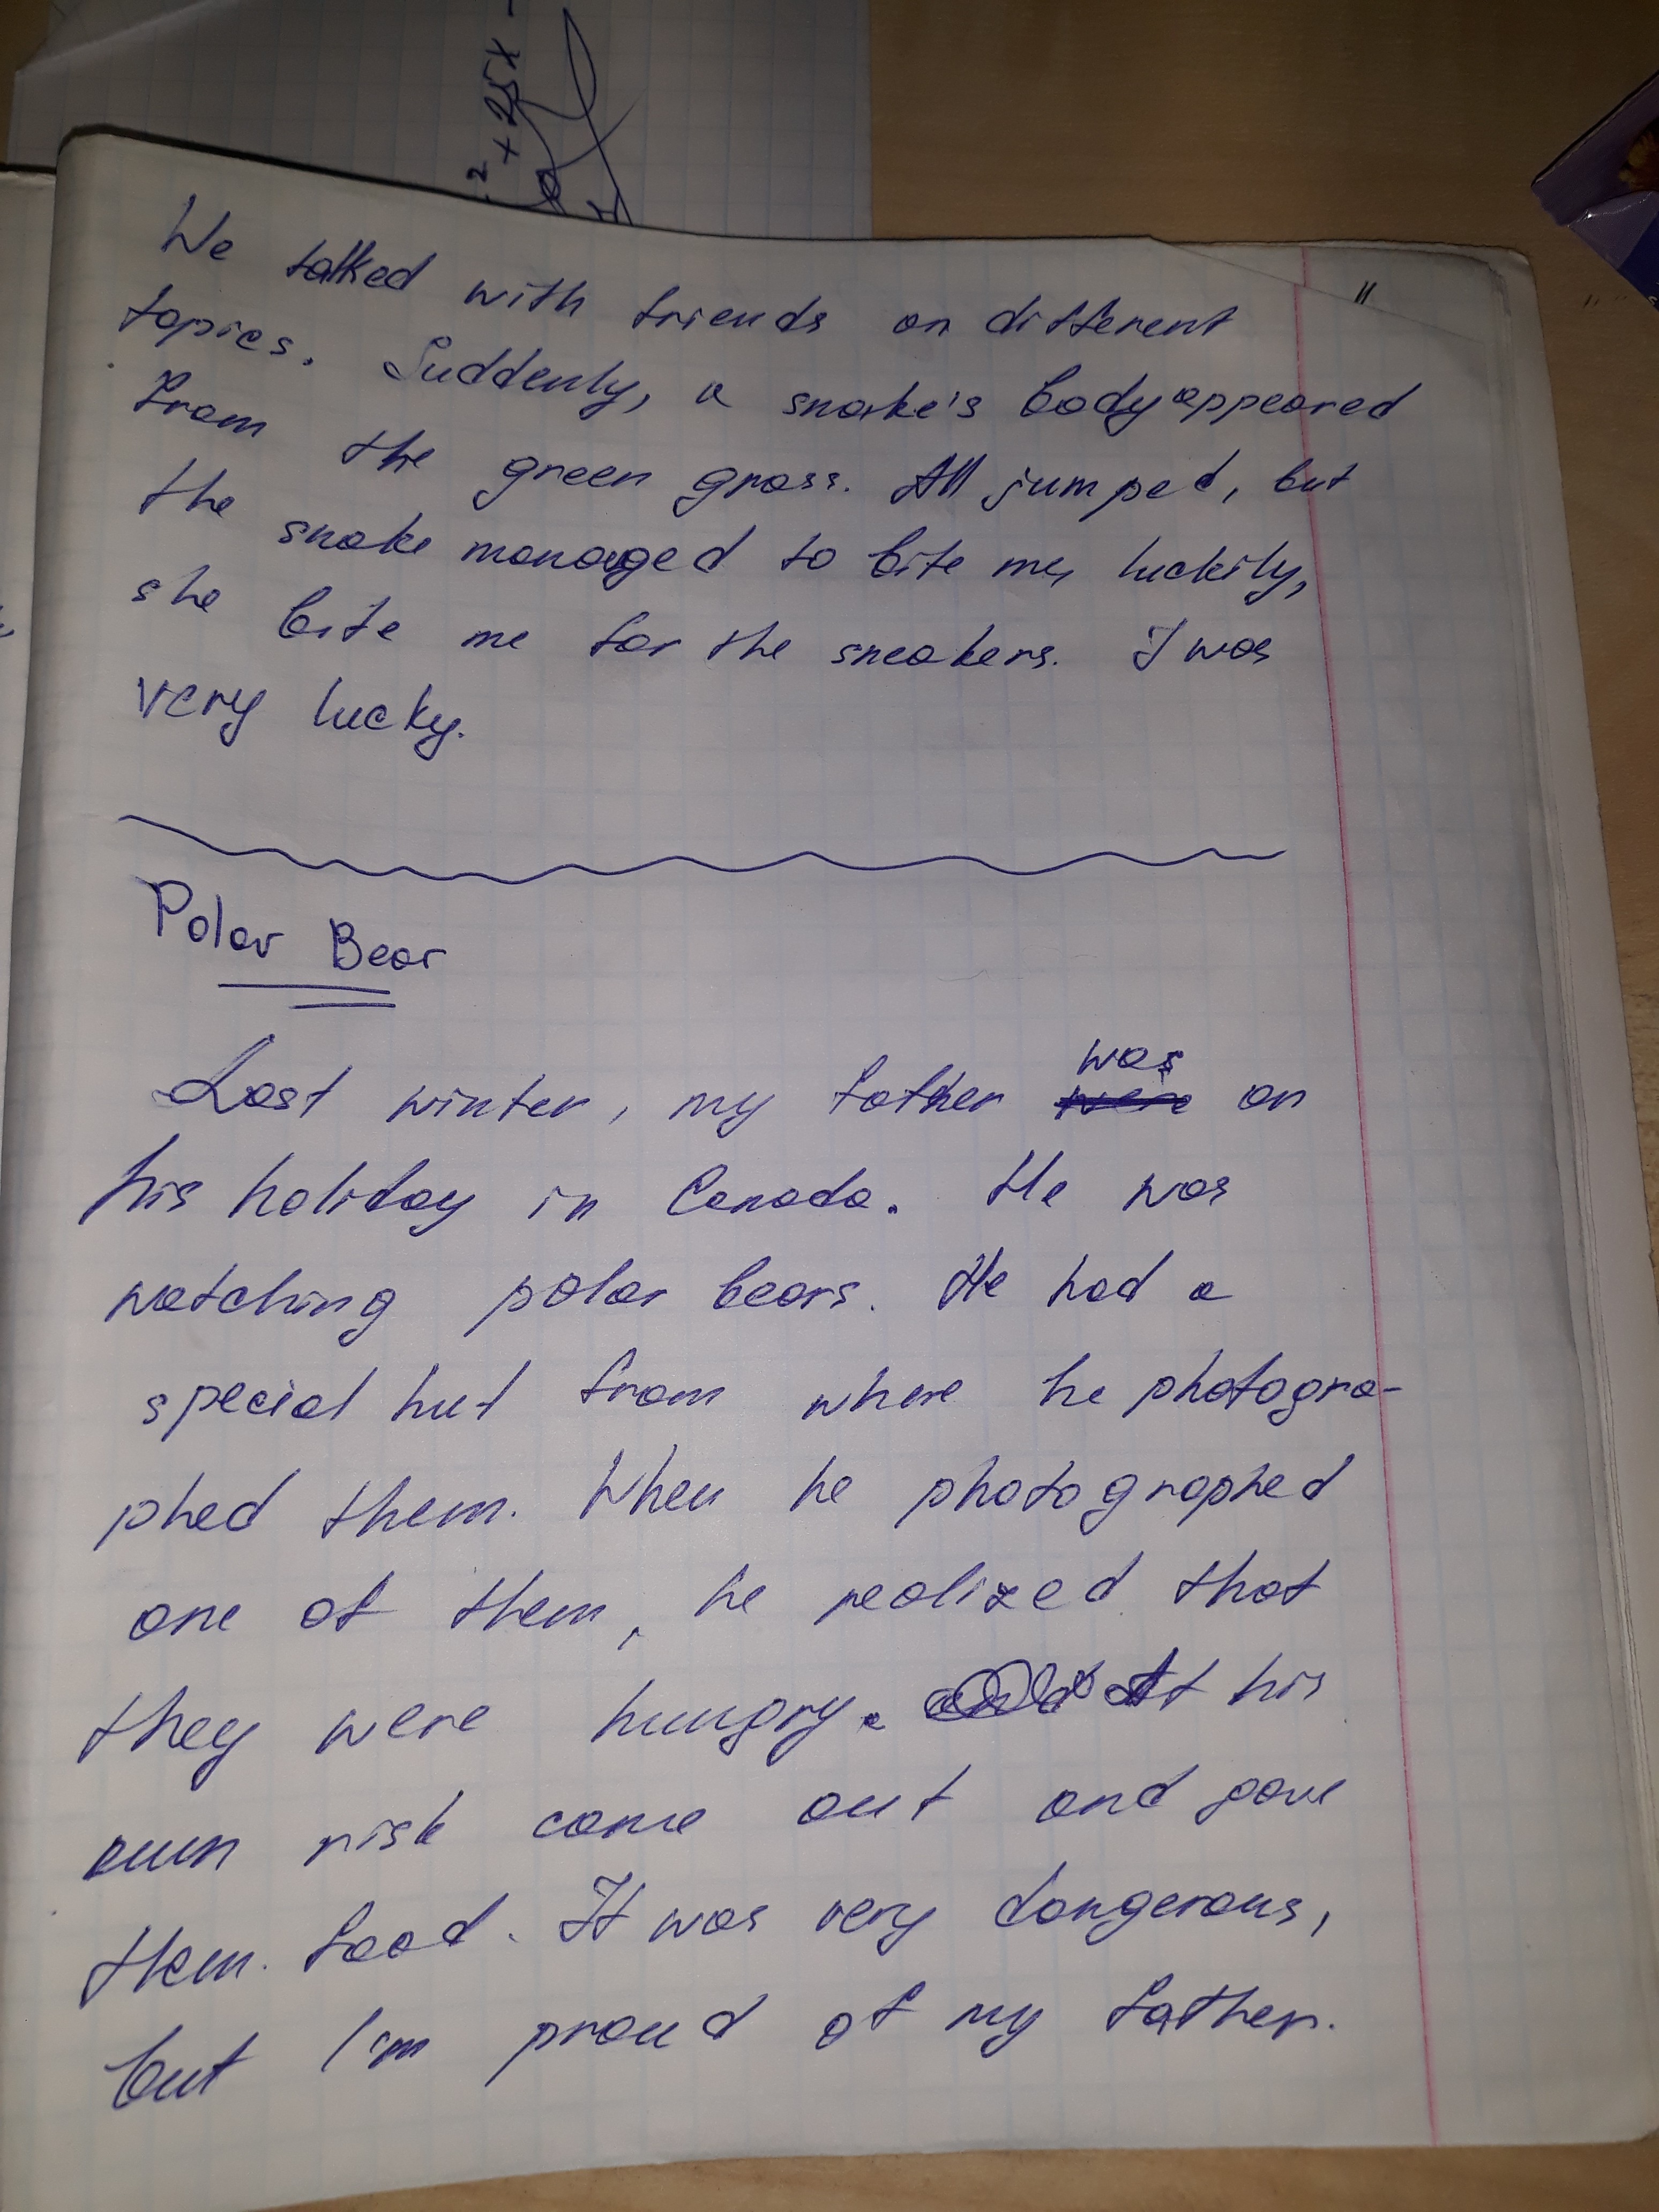 ² + 25x -
We talked with friends on different
topics. Suddenly, a snake's body appeared
from the green grass. All jumped, but
the snake managed to bite me, luckily,
she bite me for the sneakers. I was
very lucky.
Polar Bear
Last winter, my father was were on
his holiday in Canada. He was
watching polar bears. He had a
special hut from where he photogra-
phed them. When he photographed
one of them, he realized that
they were hungry. At his
own risk came out and gave
them food. It was very dangerous,
but I'm proud of my father.